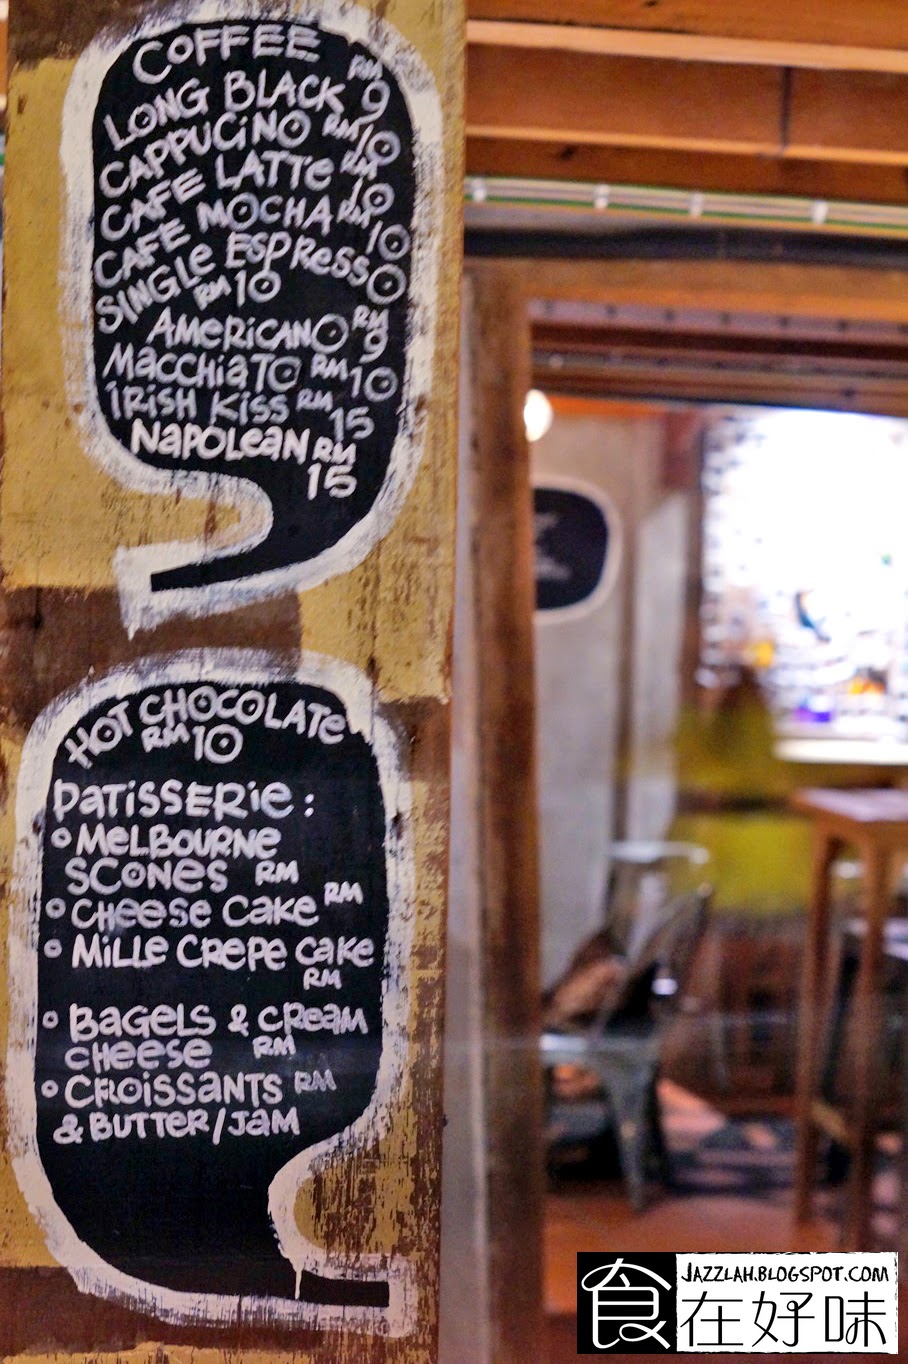 COFFEE
LONG BLACK RM 9
CAPPUCINO RM 10
CAFE LATTE RM 10
CAFE MOCHA RM 10
SINGLE ESPRESSO
RM 10
AMERICANO RM 9
MACCHIATO RM 10
IRISH KISS RM 15
NAPOLEAN RM
15
HOT CHOCOLATE
RM 10
PATISSERIE:
MELBOURNE
SCONES RM
CHEESE CAKE RM
MILLE CREPE CAKE
RM
BAGELS & CREAM
CHEESE RM
CROISSANTS RM
& BUTTER/JAM
JAZZLAH.BLOGSPOT.COM
食在好味